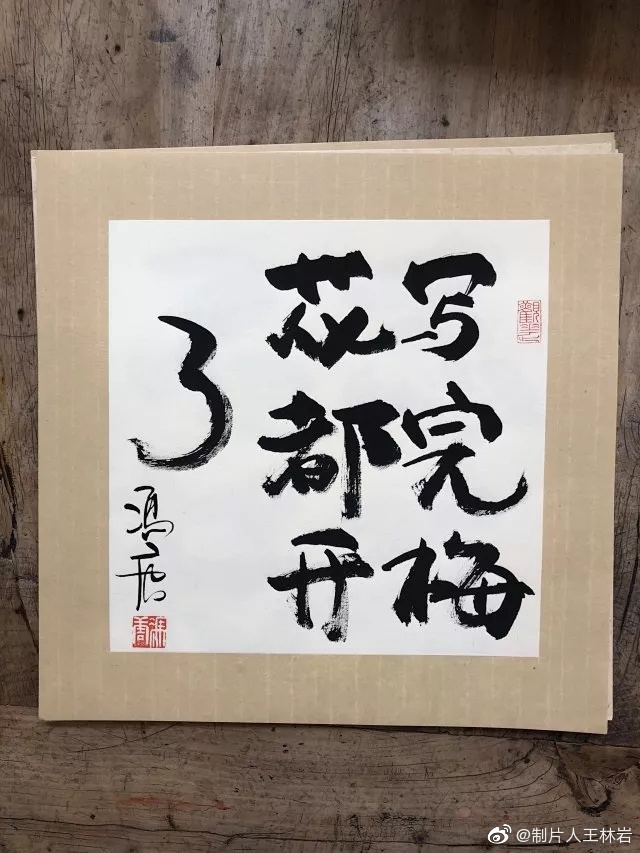 写完梅
花都开
了
冯唐
@制片人王林岩